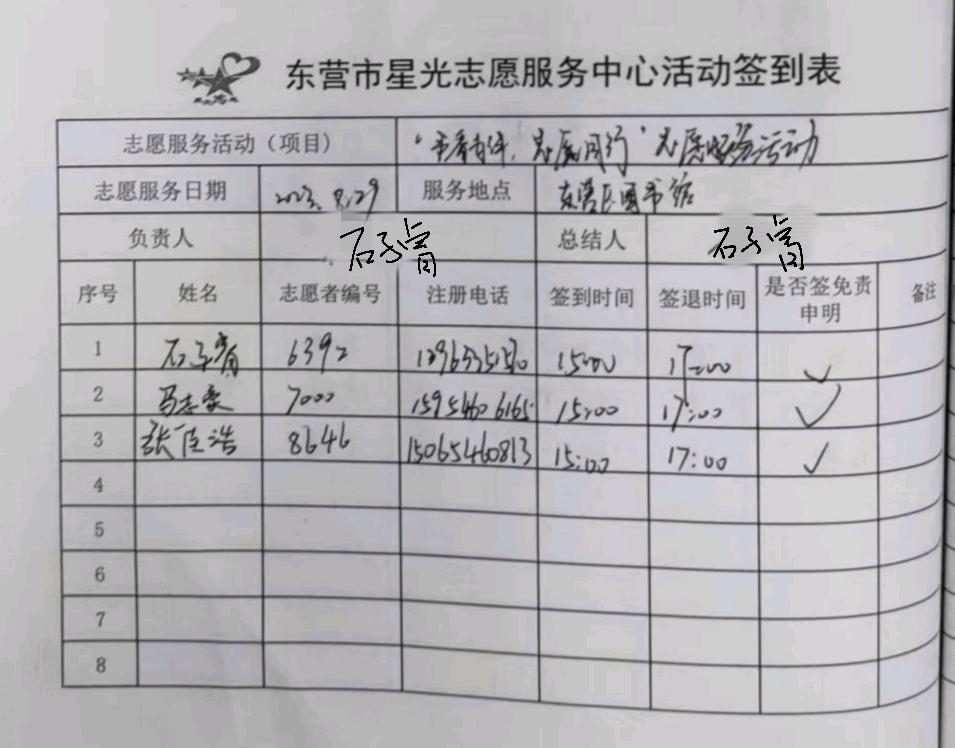 东营市星光志愿服务中心活动签到表
志愿服务活动（项目） "书香有伴，志愿同行"志愿服务活动
志愿服务日期 2023.8.29 服务地点 东营区图书馆
负责人 总结人
序号 姓名 志愿者编号 注册电话 签到时间 签退时间 是否签免责申明 备注
1 6392 15:00 17:00 ✓
2 7000 15954606165 15:00 17:00 ✓
3 张佳浩 8646 15065460813 15:00 17:00 ✓
4
5
6
7
8